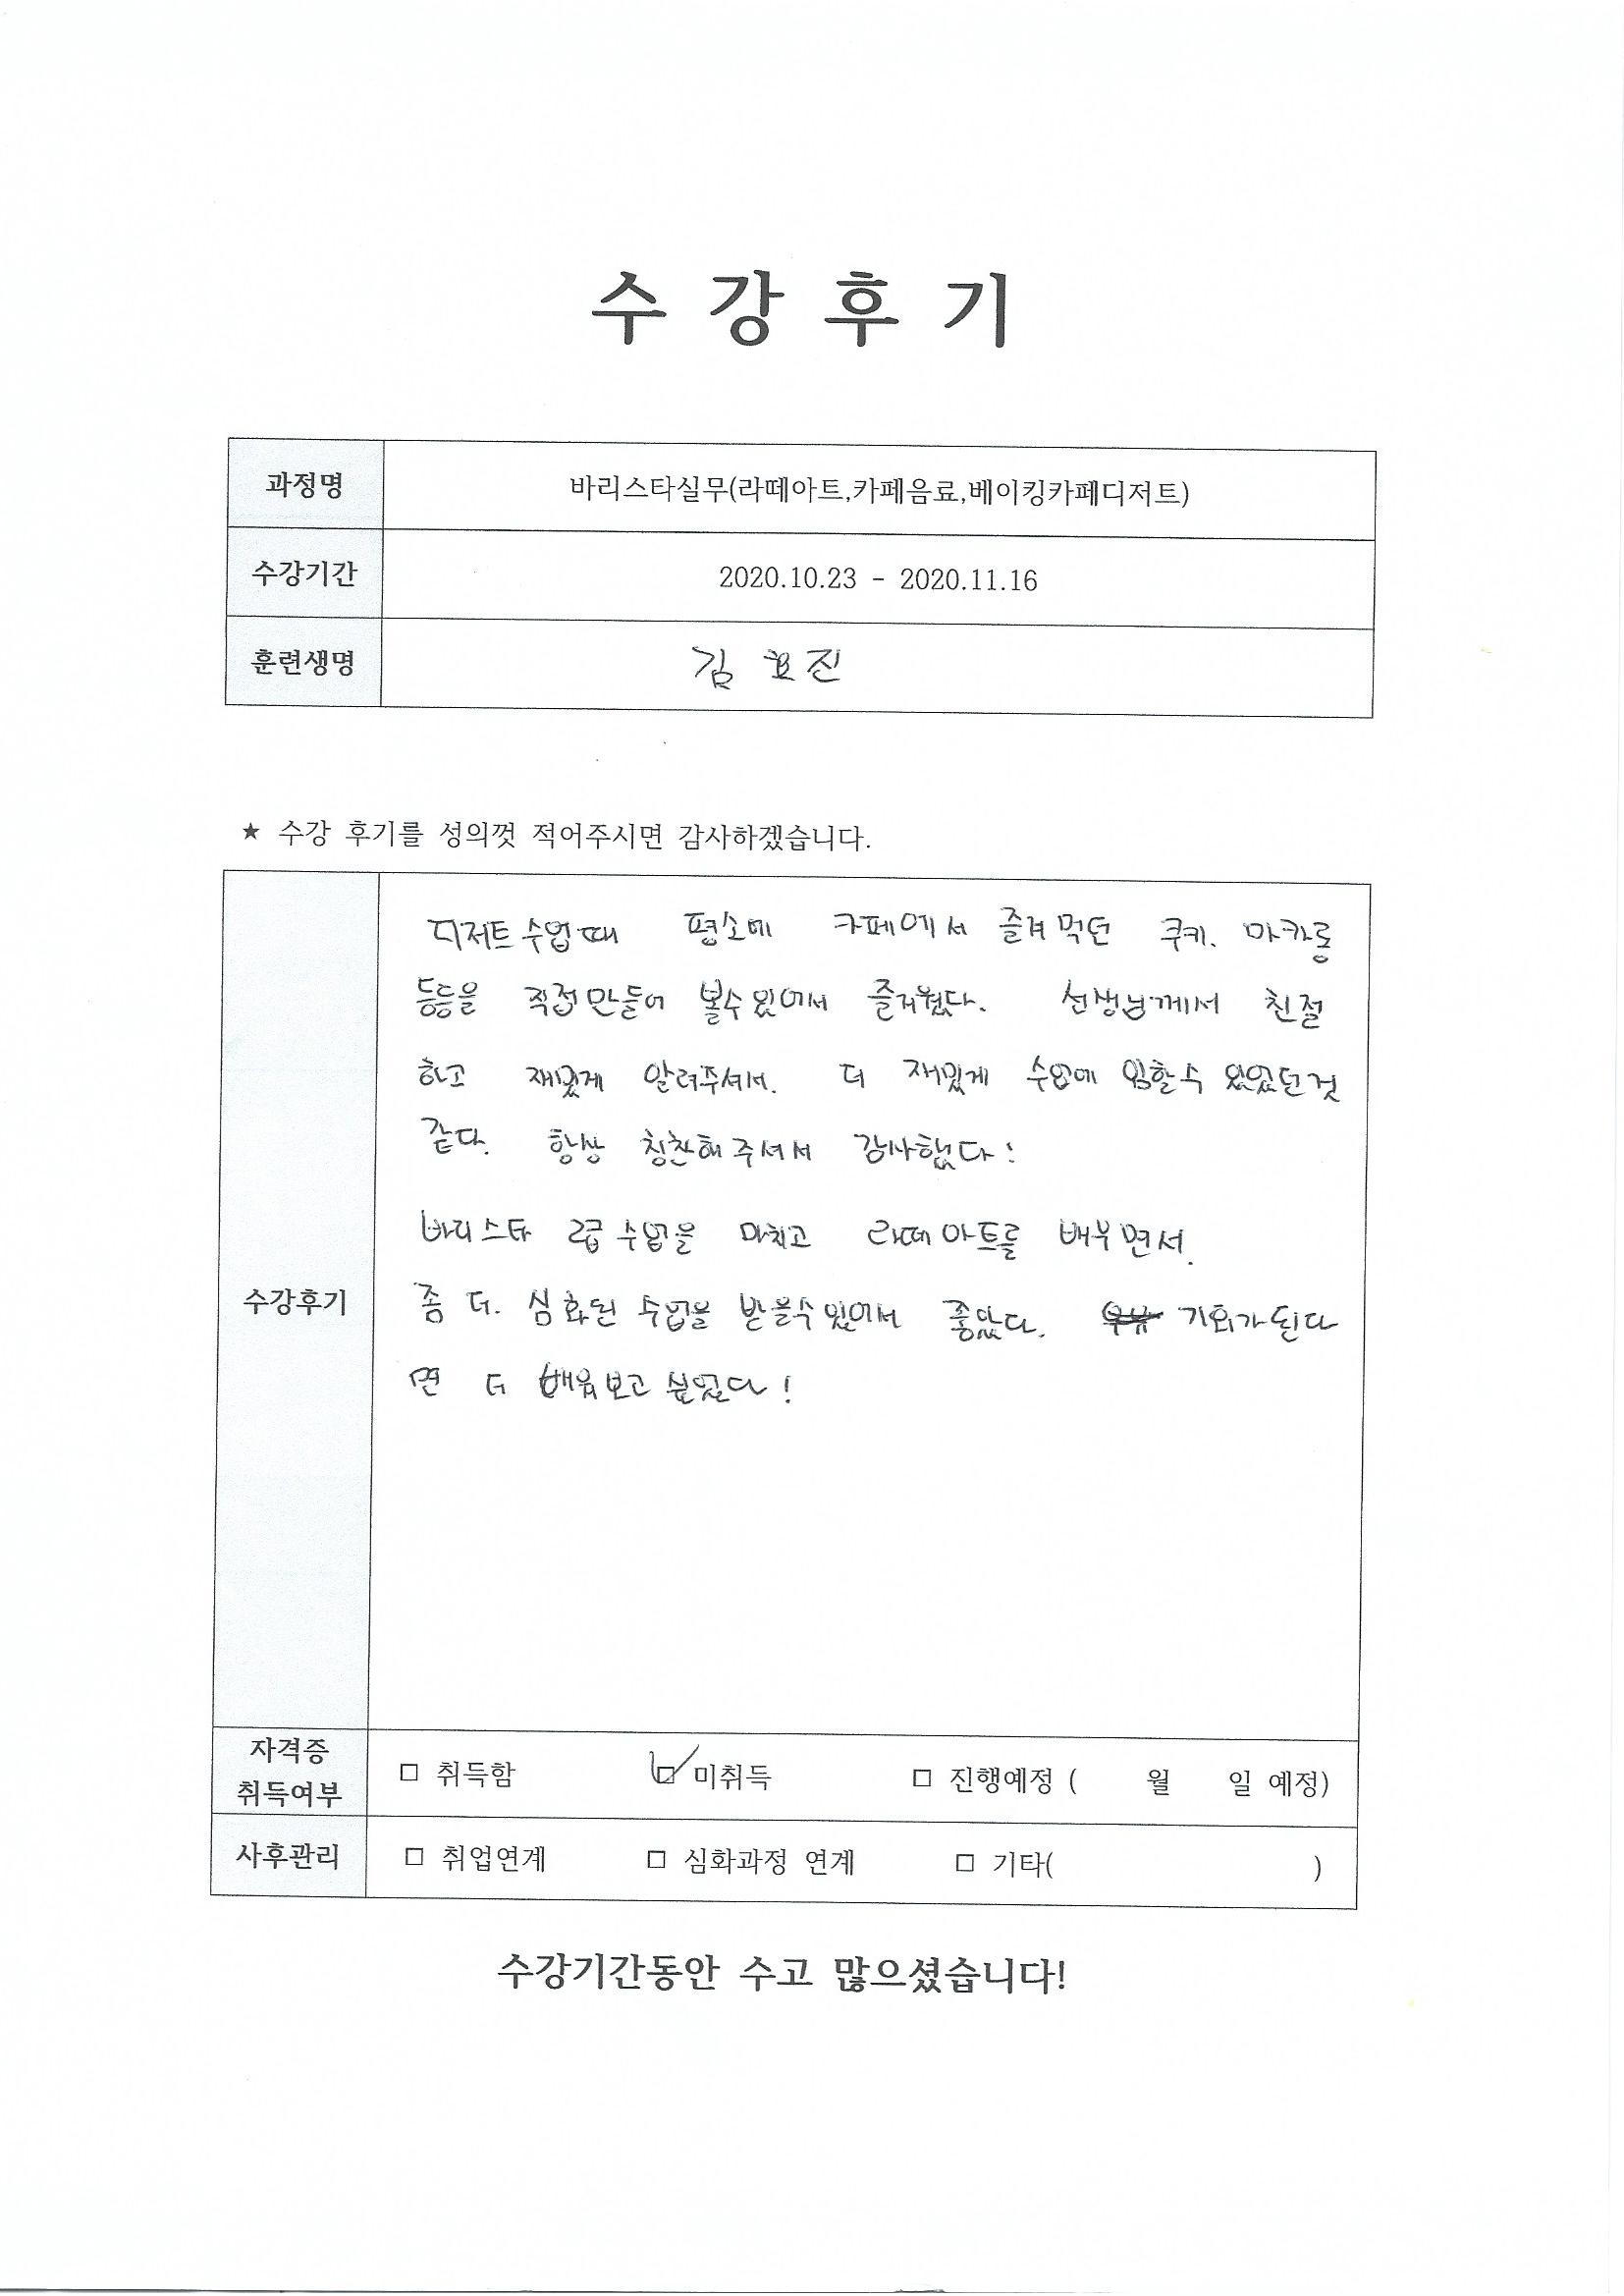 수 강 후 기
과정명 바리스타실무(라떼아트,카페음료,베이킹카페디저트)
수강기간 2020.10.23 - 2020.11.16
훈련생명 김 효 진
★ 수강 후기를 성의껏 적어주시면 감사하겠습니다.
디저트 수업때 평소에 카페에서 즐겨 먹던 쿠키. 마카롱
등등을 직접 만들어 볼수 있어서 즐거웠다. 선생님께서 친절
하고 재밌게 알려주셔서. 더 재밌게 수업에 임할 수 있었던것
같다. 항상 칭찬해 주셔서 감사했다!
바리스타 2급 수업을 마치고 라떼 아트를 배우면서.
수강후기
좀 더. 심화된 수업을 받을수 있어서 좋았다. 기회가 된다
면 더 배워보고 싶었다!
자격증
취득여부
□ 취득함 ☑ 미취득 □ 진행예정 ( 월 일 예정)
사후관리 □ 취업연계 □ 심화과정 연계 □ 기타( )
수강기간동안 수고 많으셨습니다!